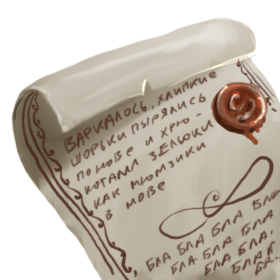 ВАРКАЛОСЬ, ХЛИПКИЕ
ШОРЬКИ ПЫРЯЛИСЬ
ПО НОВЕ И ХРЮ-
КОТАЛИ ЗЕЛЮКИ
КАК МЮМЗИКИ
В МОВЕ
, БЛА БЛА БЛА БЛА
БЛА БЛА БЛА БЛА
БЛА БЛА БЛА!
БЛА БЛА.